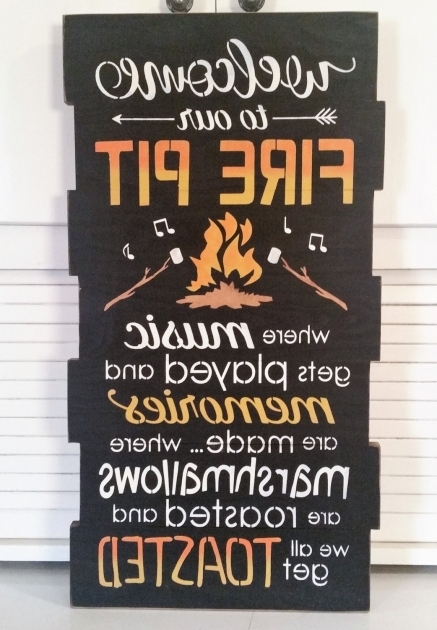 welcome
to our
FIRE PIT
where music
gets played and
memories
are made... where
marshmallows
are roasted and
we all
get TOASTED